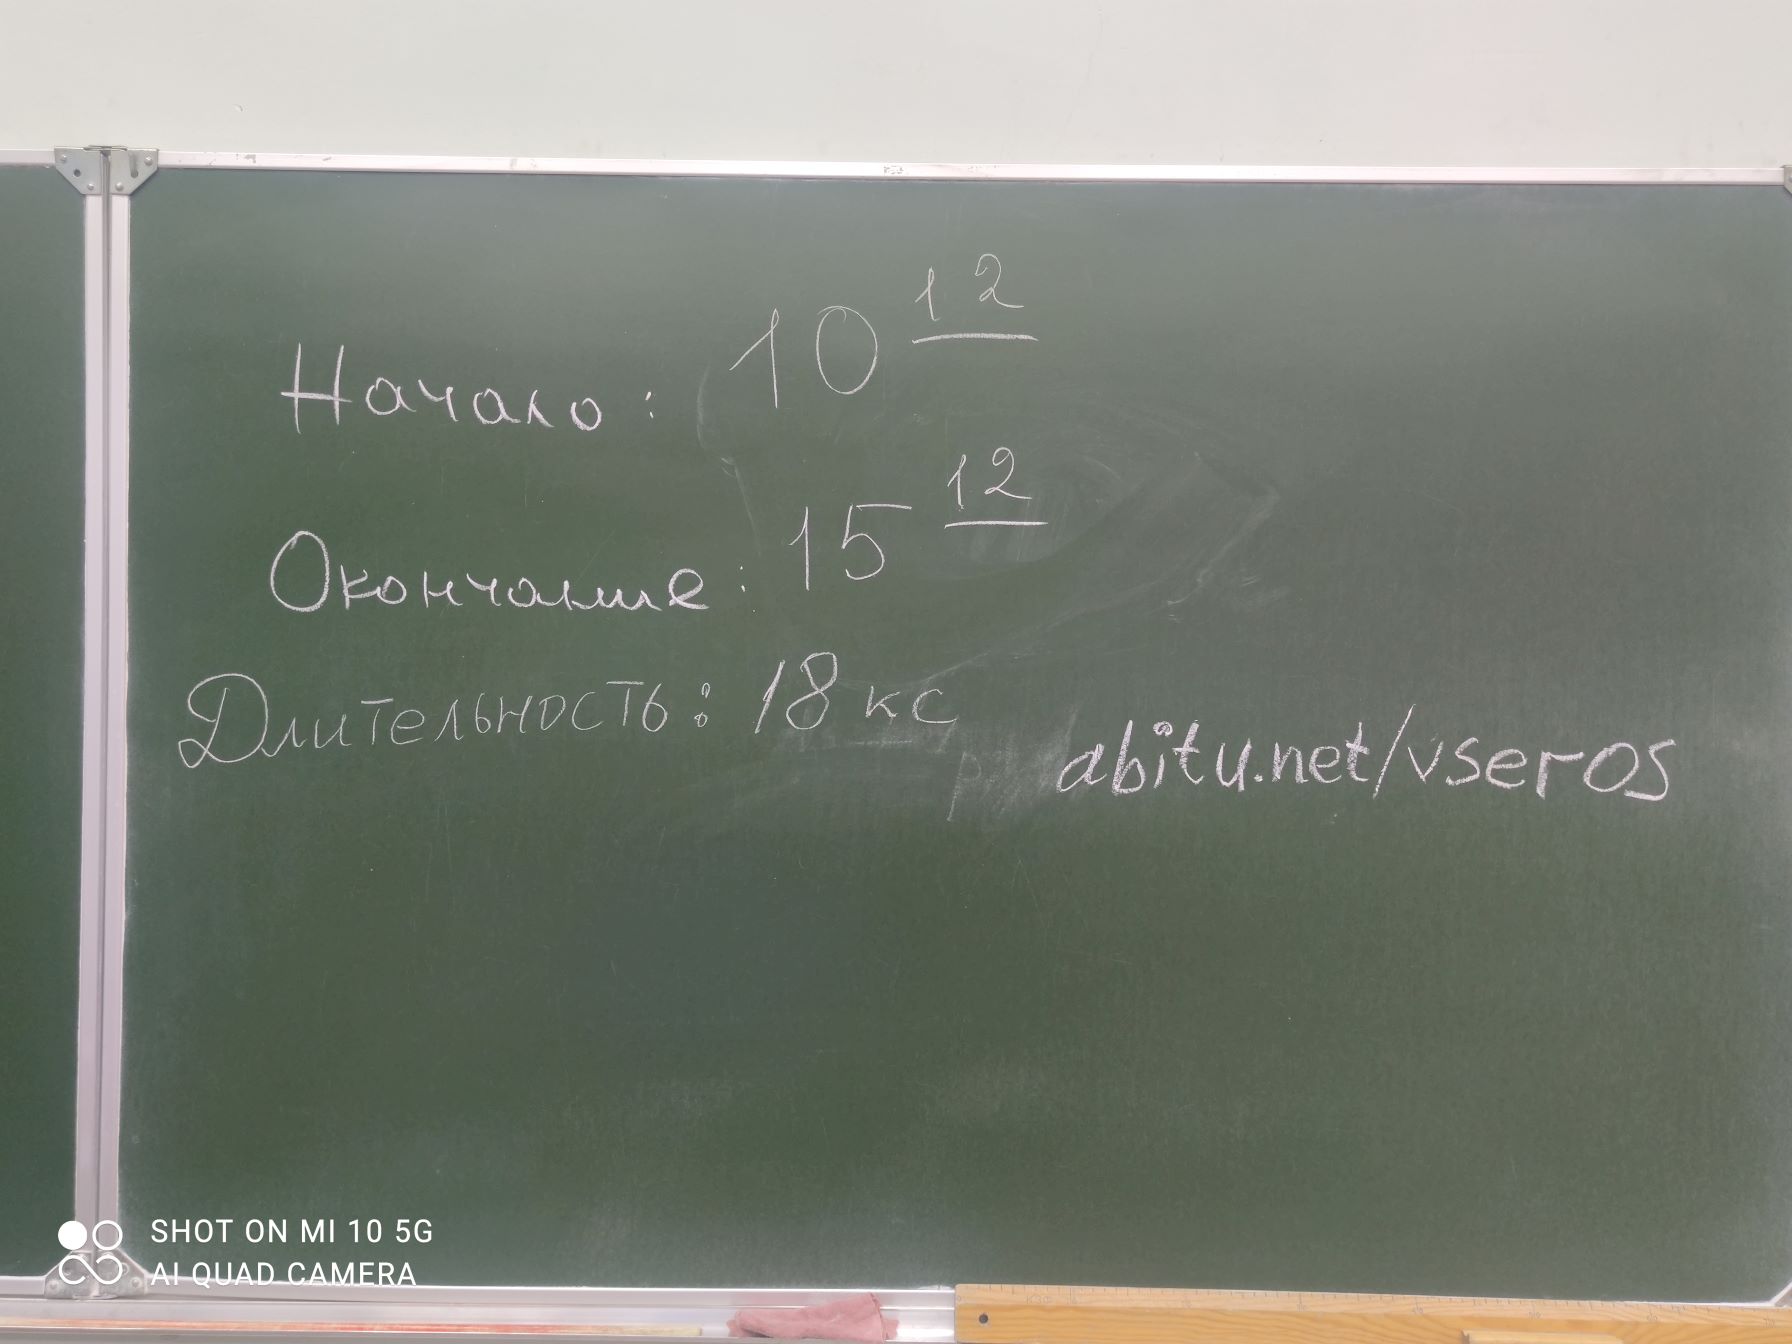 Начало: 10 12
Окончание: 15 12
Длительность: 18 кс
abitu.net/vseros
SHOT ON MI 10 5G
AI QUAD CAMERA